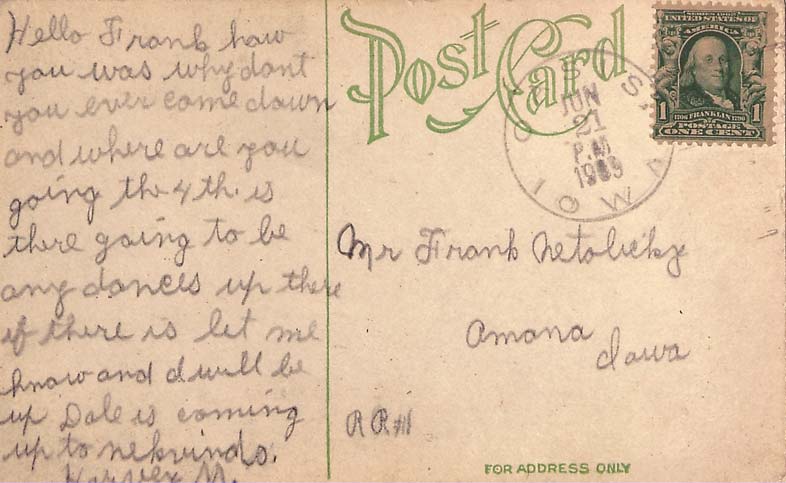 Hello Frank how
you was why dont
you ever come down
and where are you
going the 4th. is
there going to be
any dances up there
if there is let me
know and I will be
up Dale is coming
up to nekvindo.
Harvey M.
Post Card
JUN
21
P.M.
1909
IOWA
SERIES 1902
UNITED STATES OF
AMERICA
1 1
1706 FRANKLIN 1790
POSTAGE
ONE CENT
Mr Frank Netolicky
Amana
Iowa
R R #1
FOR ADDRESS ONLY